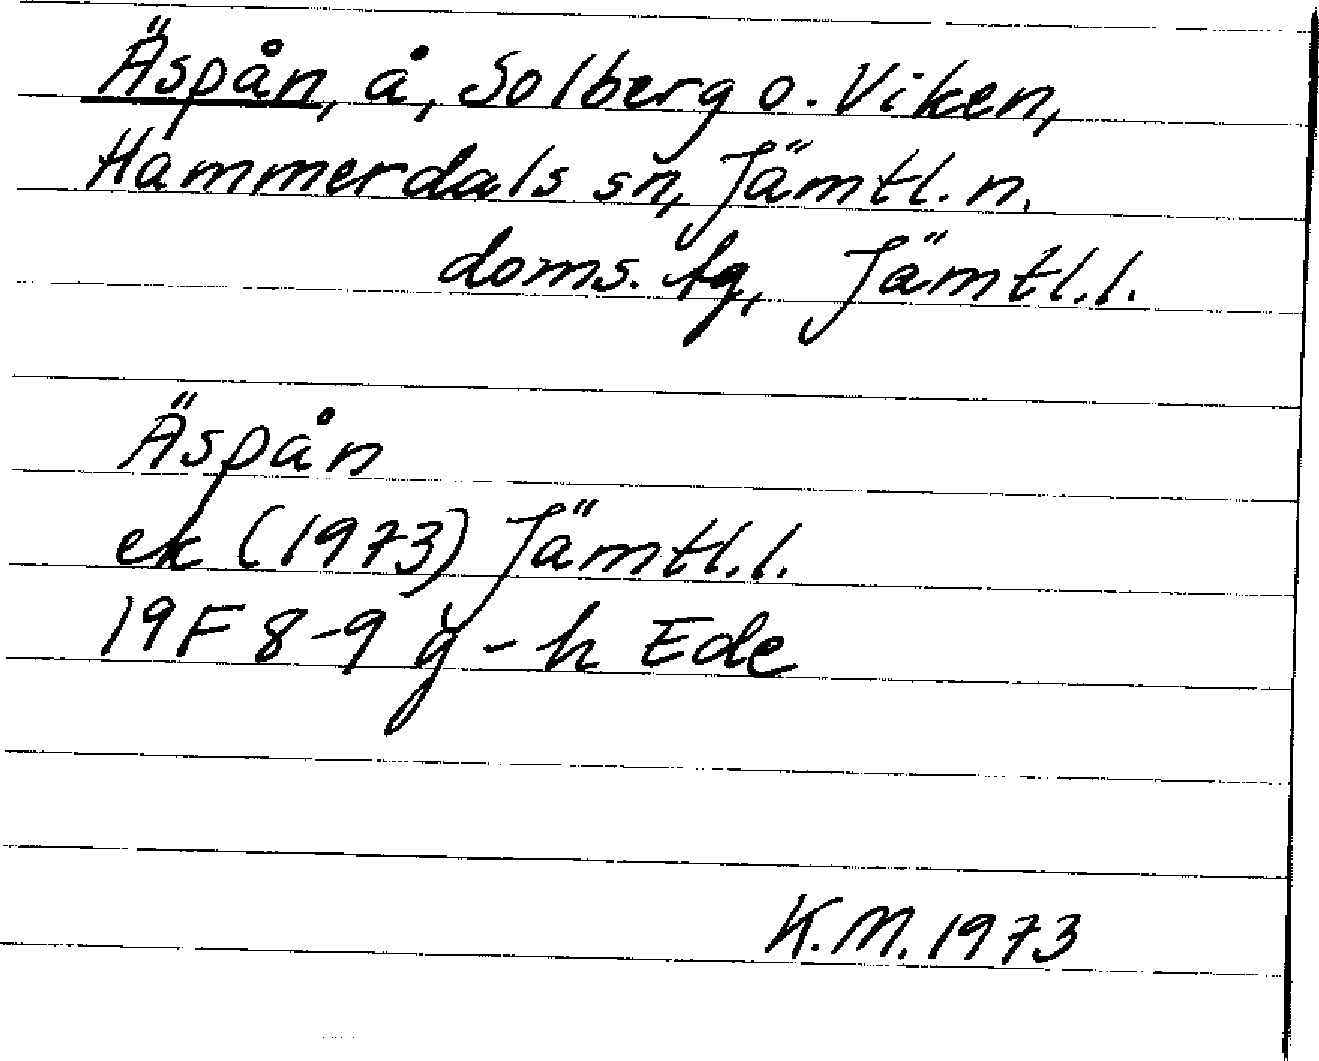 Äspån, å, Solberg o. Viken,
Hammerdals sn, Jämtl. n.
doms. tg, Jämtl.l.
Äspån
ek (1973) Jämtl.l.
19F 8-9 g-h Ede
K.M. 1973